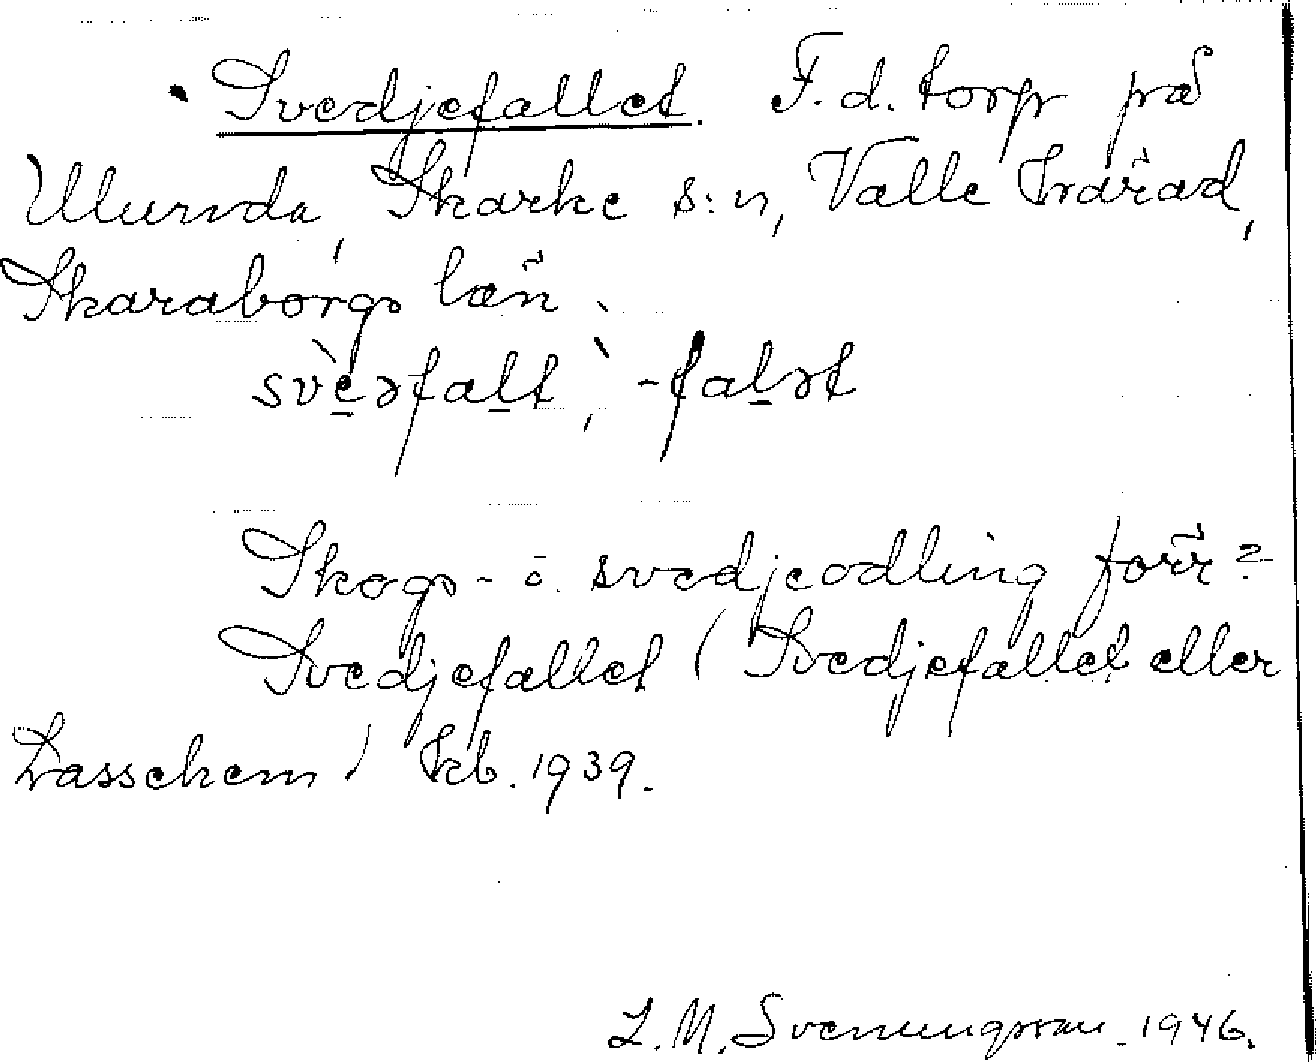 Svedjefallet. F.d. torp på
Ulunda, Skarke s:n, Valle härad,
Skaraborgs län.
svèəfalt, -falət
Skogs- o. svedjeodling förr?
Svedjefallet (Svedjefallet eller
Lassehem) Jrb. 1939.
L. M. Svenungsson 1946.